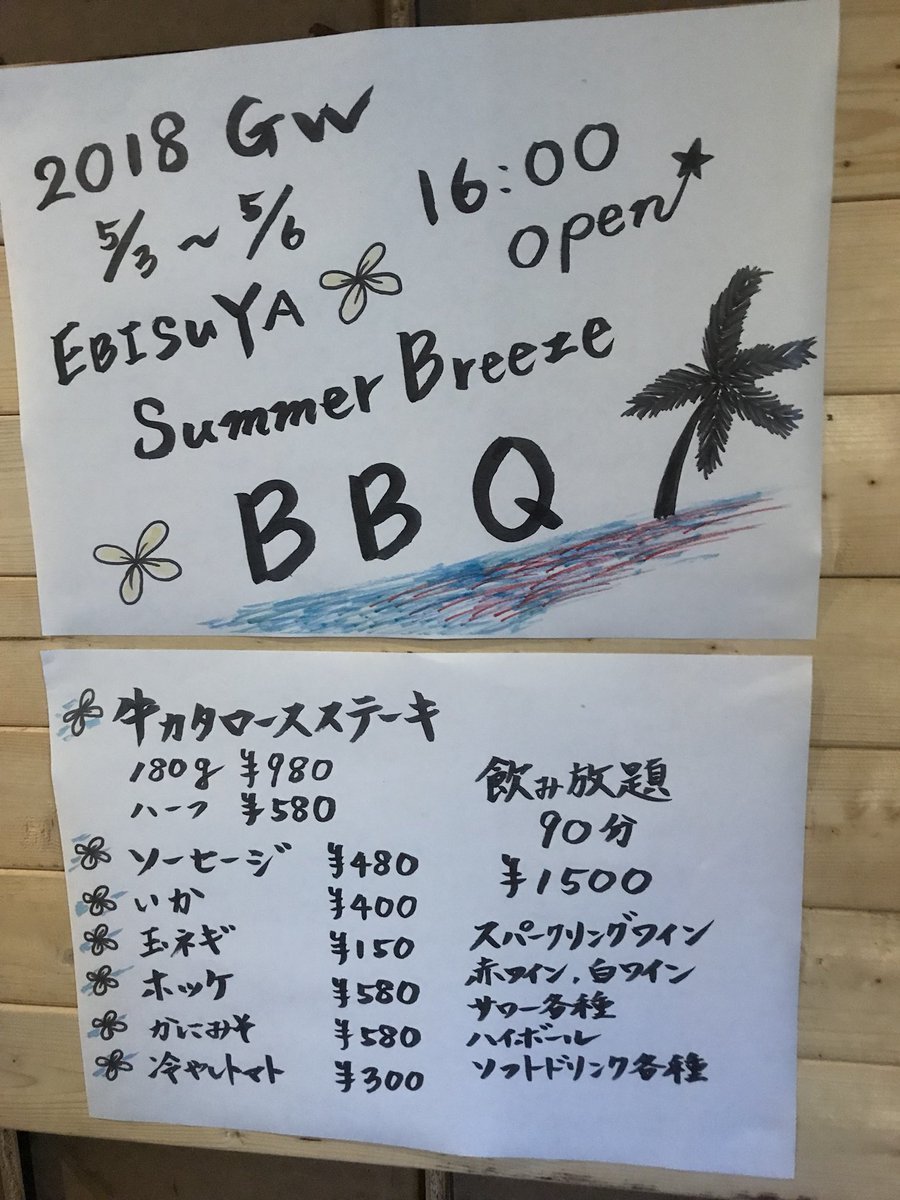 2018 GW
5/3～5/6
16:00
open
EBISUYA
Summer Breeze
BBQ
牛カタロースステーキ
180g ¥980
ハーフ ¥580
ソーセージ ¥480
いか ¥400
玉ネギ ¥150
ホッケ ¥580
かにみそ ¥580
冷やしトマト ¥300
飲み放題
90分
¥1500
スパークリングワイン
赤ワイン、白ワイン
サワー各種
ハイボール
ソフトドリンク各種